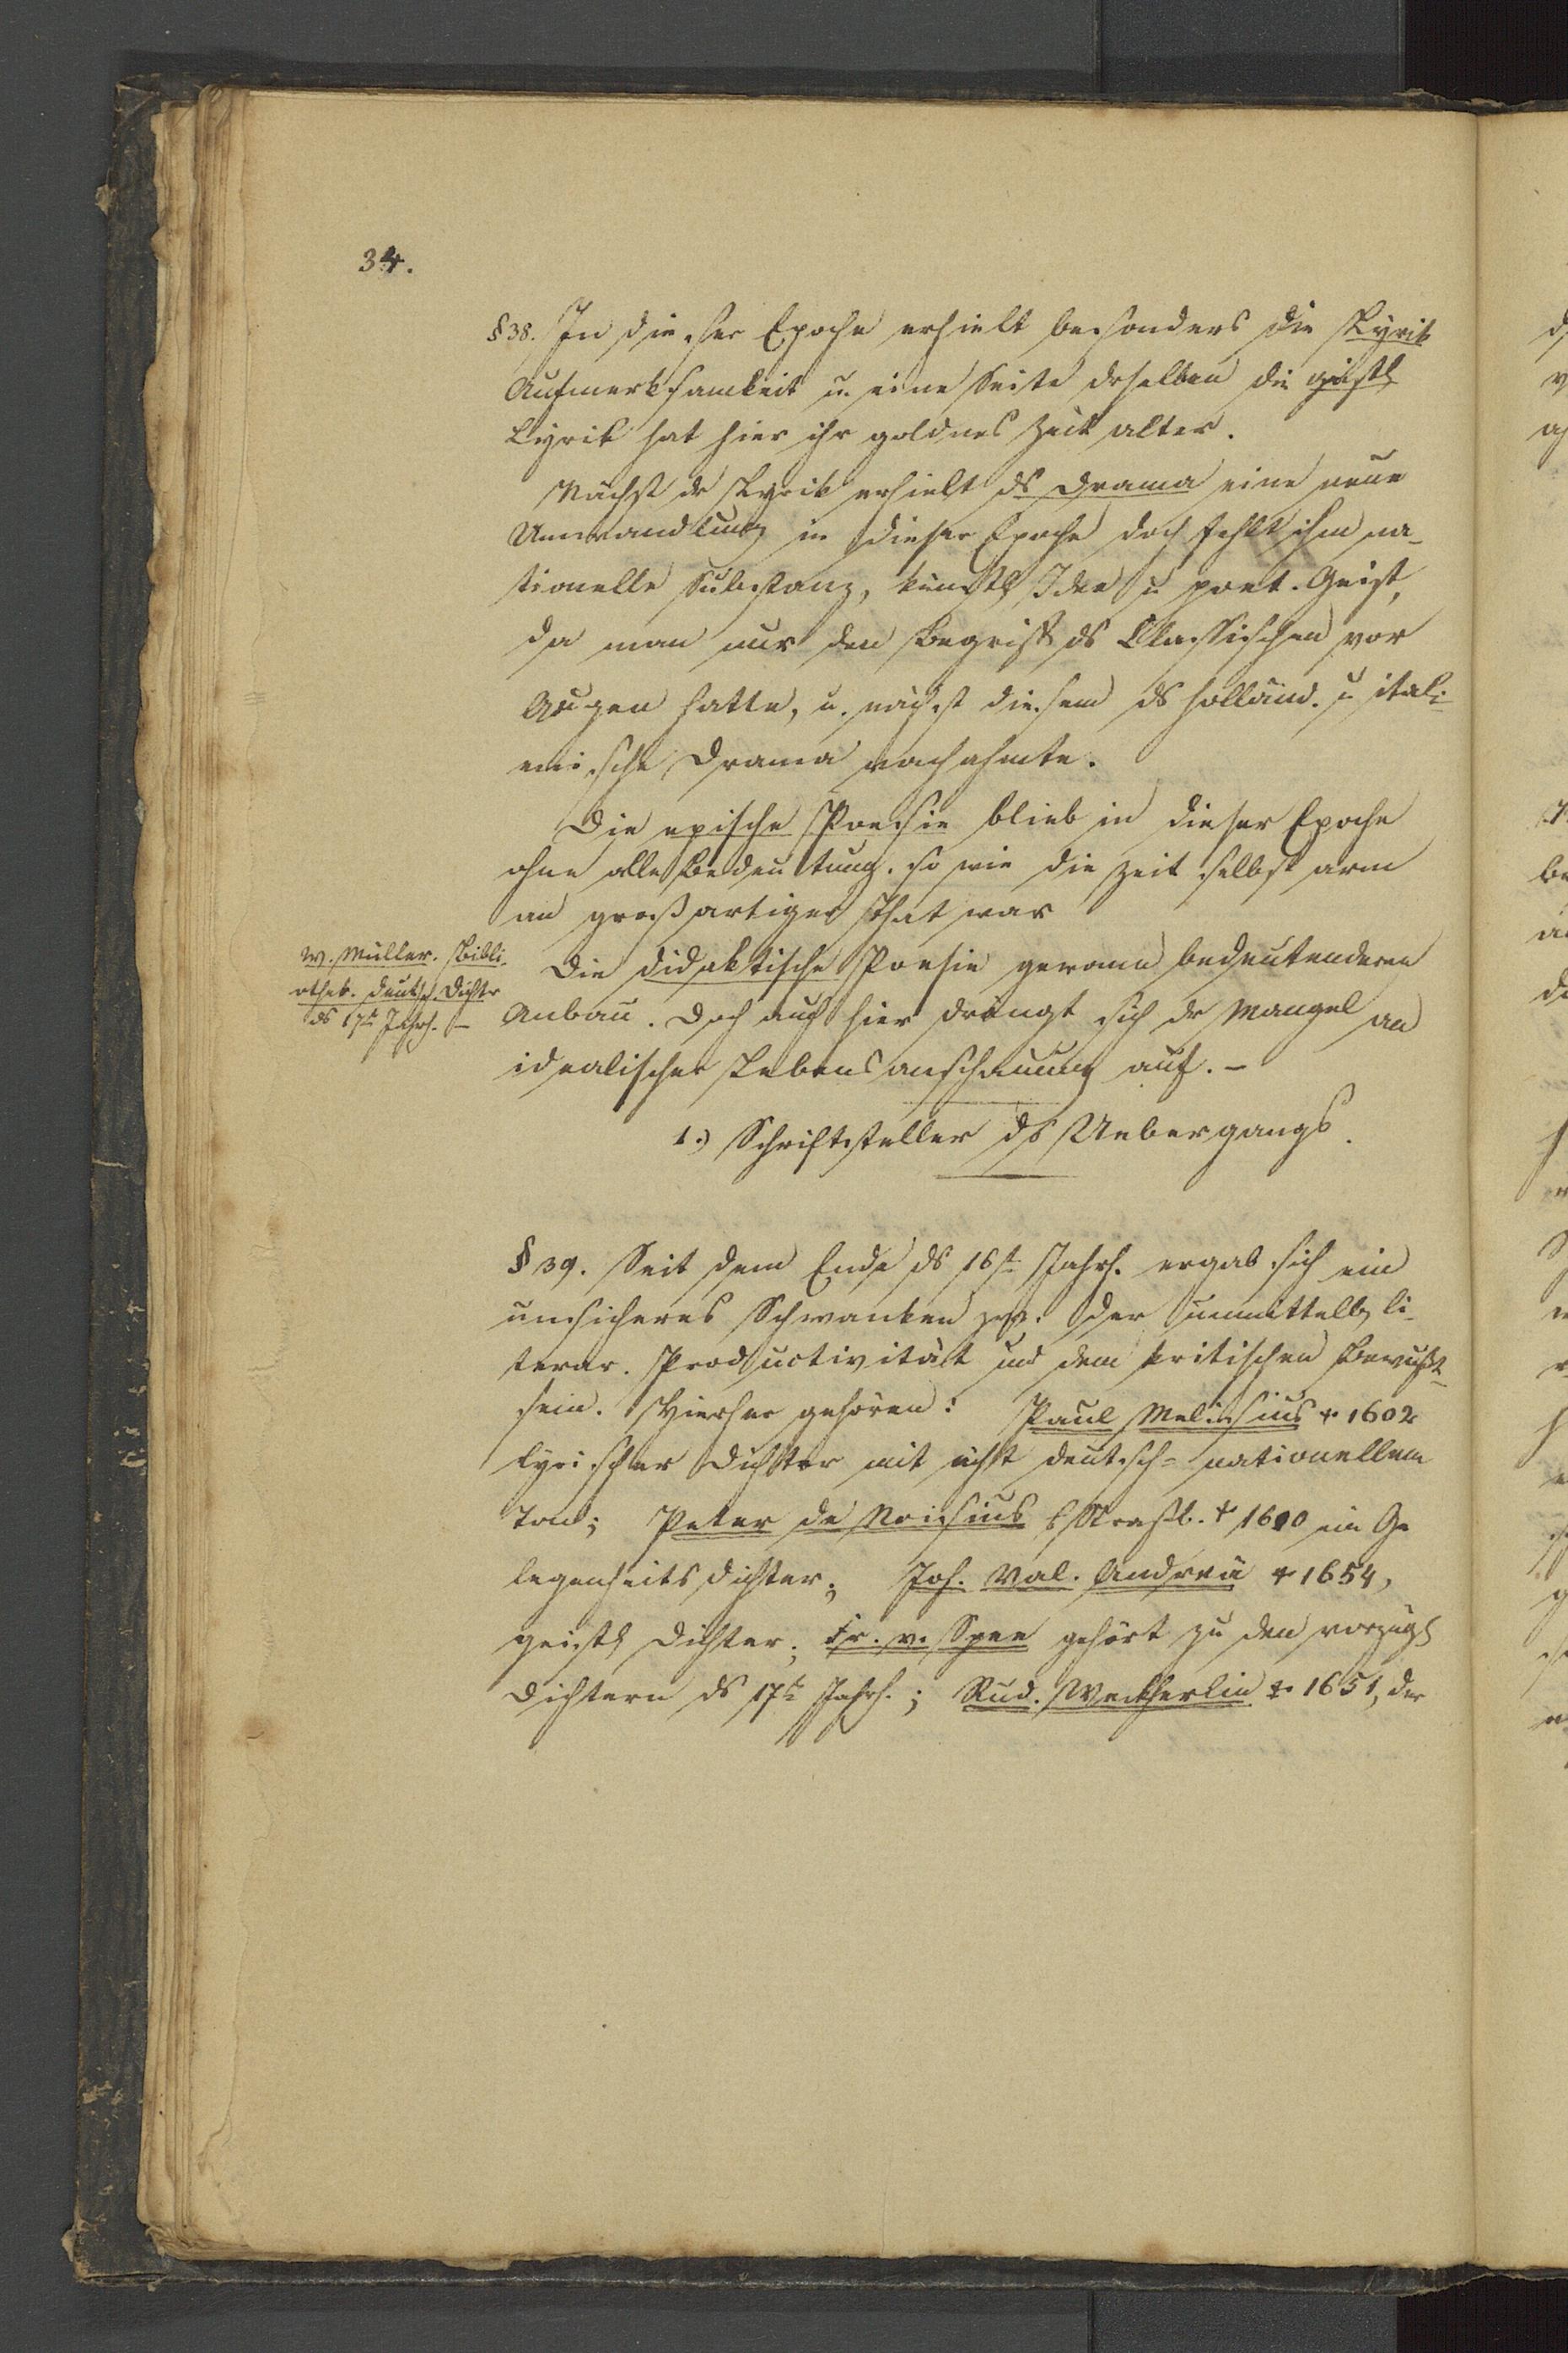 34.
§ 38. In dieser Epoche erhielt besonders die Lyrik
Aufmerksamkeit u. eine Seite derselben die geistl
Lyrik hat hier ihr goldnes Zeitalter.
Nächst dr Lyrik erhielt ds Drama eine neue
Umwandlung in dieser Epoche doch fehlt ihm na-
tionelle Substanz, künstl Idee u poet. Geist,
da man nur den Begriff ds Classischen vor
Augen hatte, u. nächst diesem ds holländ. u itali-
enische Drama nachahmte.
Die epische Poesie blieb in dieser Epoche
ohne alle Bedeutung. so wie die Zeit selbst arm
an großartiger That war
W. Müller. Bibli-
othek. deutsch. Dichtr
ds 17t Jahrh. –
Die didaktische Poesie gewann bedeutenderen
Anbau. Doch auch hier drängt sich dr Mangel an
idealischer Lebensanschauung auf. –
1.) Schriftsteller ds Uebergangs.
§ 39. Seit dem Ende ds 16t Jahrh. ergab sich ein
unsicheres Schwanken zw. der unmittelb li-
terar. Productivität und dem kritischen Bewußt-
sein. Hierher gehören: Paul Melissus † 1602
lyrischer Dichter mit ächt deutsch-nationellem
Ton; Peter de Straßb. † 1610 ein Ge
legenheitsdichter; Joh. Val. Andreä † 1654,
geistl Dichter; Fr. v. Spee gehört zu den vorzügl
Dichtern ds 17t Jahrh.; Rud. Weckherlin † 1651, der